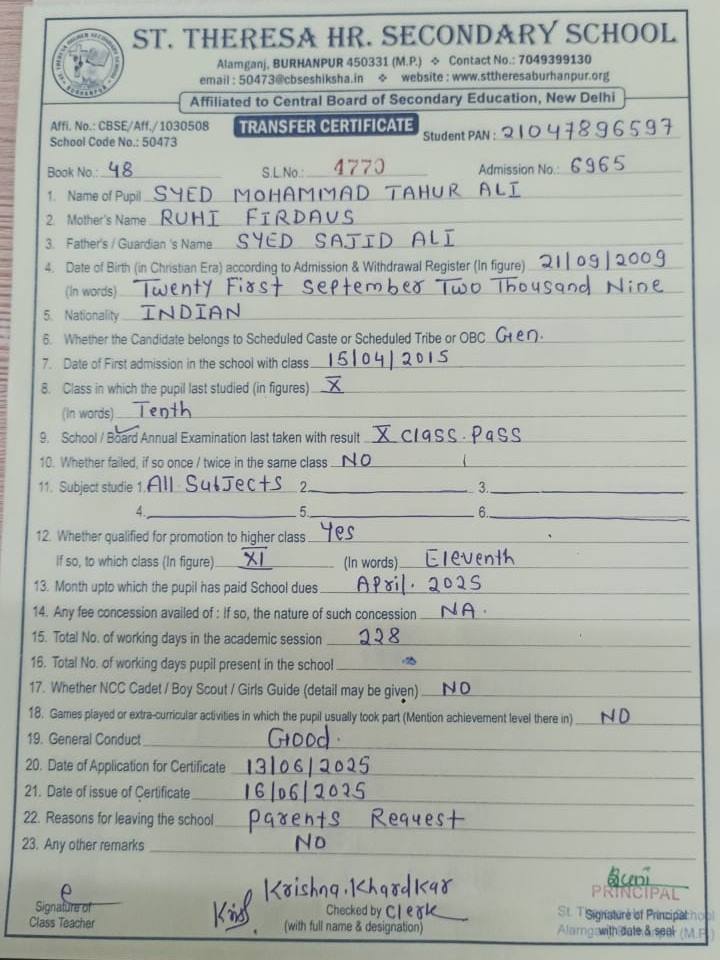 ST. THERESA HR. SECONDARY SCHOOL
Alamganj, BURHANPUR 450331 (M.P.) ❖ Contact No.: 7049399130
email : 50473@cbseshiksha.in ❖ website : www.sttheresaburhanpur.org
Affiliated to Central Board of Secondary Education, New Delhi
Affi. No.: CBSE/Aff./1030508 TRANSFER CERTIFICATE Student PAN : 21047896597
School Code No.: 50473
Book No.: 48 S.L.No.: 4770 Admission No.: 6965
1. Name of Pupil SYED MOHAMMAD TAHUR ALI
2. Mother's Name RUHI FIRDAUS
3. Father's / Guardian 's Name SYED SAJID ALI
4. Date of Birth (in Christian Era) according to Admission & Withdrawal Register (In figure) 21/09/2009
(In words) Twenty First September Two Thousand Nine
5. Nationality INDIAN
6. Whether the Candidate belongs to Scheduled Caste or Scheduled Tribe or OBC Gen.
7. Date of First admission in the school with class 15/04/2015
8. Class in which the pupil last studied (in figures) X
(In words) Tenth
9. School / Board Annual Examination last taken with result X Class. Pass
10. Whether failed, if so once / twice in the same class NO
11. Subject studie 1. All Subjects 2. 3.
4. 5. 6.
12. Whether qualified for promotion to higher class Yes
If so, to which class (In figure) XI (In words) Eleventh
13. Month upto which the pupil has paid School dues April. 2025
14. Any fee concession availed of : If so, the nature of such concession NA.
15. Total No. of working days in the academic session 228
16. Total No. of working days pupil present in the school
17. Whether NCC Cadet / Boy Scout / Girls Guide (detail may be given) NO
18. Games played or extra-curricular activities in which the pupil usually took part (Mention achievement level there in) NO
19. General Conduct Good.
20. Date of Application for Certificate 13/06/2025
21. Date of issue of Certificate 16/06/2025
22. Reasons for leaving the school Parents Request
23. Any other remarks NO
Krishna. Khardkar
PRINCIPAL
Signature of Checked by Clerk Signature of Principal
Class Teacher (with full name & designation) with date & seal